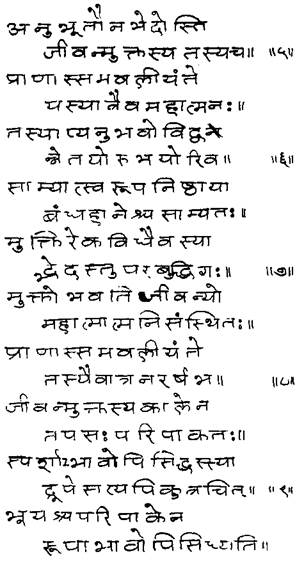 अनुभूतौ न भेदोस्ति
जीवन्मुक्तस्य तस्यच ॥५॥
प्राणास्समवलीयंते
यस्यात्रैव महात्मनः॥
तस्याप्यनुभवो विद्व
न्नेतयोरुभयोरिव॥ ॥६॥
साम्यात्स्वरूपनिष्ठाया
बंधहानेश्च साम्यतः॥
मुक्तिरेकविधैवस्या
द्भेदस्तु परबुद्धिगः॥ ॥७॥
मुक्तो भवति जीवन्यो
महात्मात्मनि संस्थितः॥
प्राणास्समवलीयंते
तस्यैवात्र नरर्षभ॥ ॥८॥
जीवन्मुक्तस्य कालेन
तपसः परिपाकतः॥
स्पर्शाभावोपि सिद्धस्स्या
द्रूपे सत्यपि कुत्रचित्॥ ॥९॥
भूयश्च परिपाकेन
रूपाभावोपि सिध्यति॥